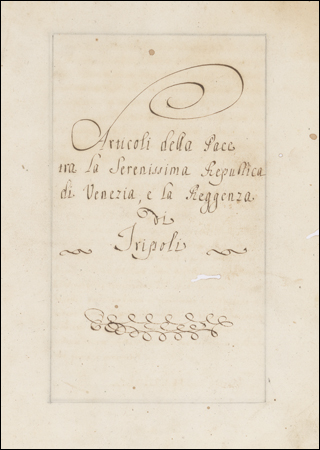 Articoli della Pace
tra la Serenissima Republica
di Venezia, e la Reggenza
Di
Tripoli